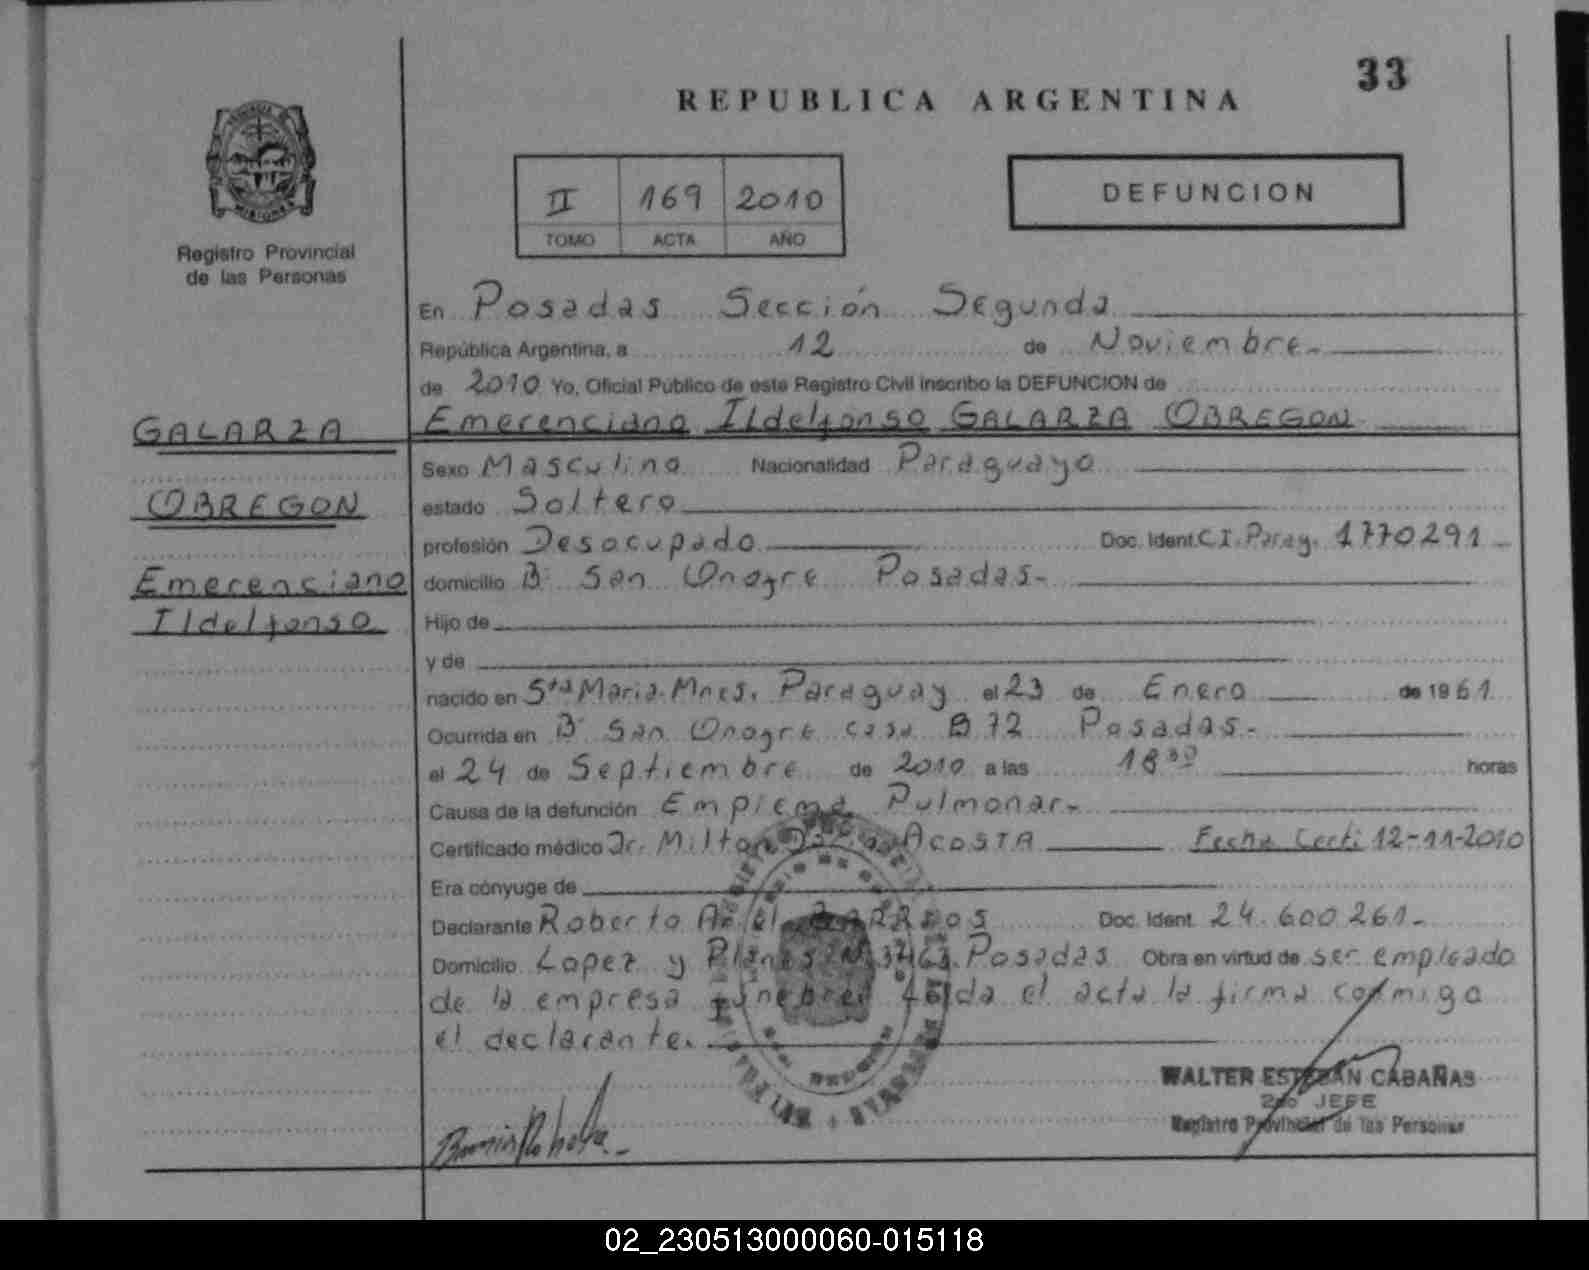 33
REPUBLICA ARGENTINA
II 169 2010
TOMO ACTA AÑO
DEFUNCION
Registro Provincial
de las Personas
En Posadas Sección Segunda
República Argentina, a 12 de Noviembre.-
de 2010 Yo, Oficial Público de este Registro Civil inscribo la DEFUNCION de
GALARZA
Emerenciano Ildelfonso GALARZA OBREGON
Sexo Masculino Nacionalidad Paraguayo
OBREGON
estado Soltero
profesión Desocupado Doc. Ident. C.I. Parag. 1770291-
Emerenciano
domicilio B° San Onofre Posadas-
Ildelfonso
Hijo de
y de
nacido en Sta Maria. Mnes. Paraguay el 23 de Enero de 1961
Ocurrida en B° San Onofre casa B 72 Posadas-
el 24 de Septiembre de 2010 a las 18 30 horas
Causa de la defunción Empiema Pulmonar-
Certificado médico Dr. Milton ACOSTA Fecha Cert: 12-11-2010
Era cónyuge de
Declarante Roberto BARRIOS Doc. Ident. 24.600261-
Domicilio Lopez y Planes N° 3463 Posadas Obra en virtud de ser empleado
de la empresa funebre Leida el acta la firma conmigo
el declarante.
WALTER ESTEBAN CABAÑAS
2do JEFE
Registro Provincial de las Personas
02_230513000060-015118